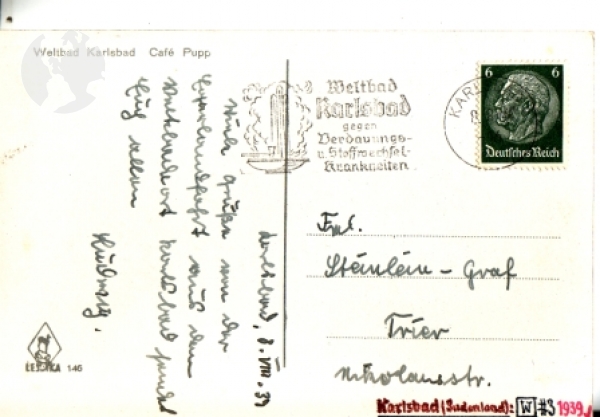 Weltbad Karlsbad Café Pupp
Weltbad
Karlsbad
gegen
Verdauungs-
u. Stoffwechsel-
Krankheiten
KARL
6 6
Deutsches Reich
Karlsbad, 8. VIII. 39
Viele Grüße von der
aus dem
Karlsbad sendet
Euch allen
Ludwig.
Frl.
Steinlein - Graf
Trier
Nikolausstr.
146
Karlsbad (Sudenland): W #3 1939